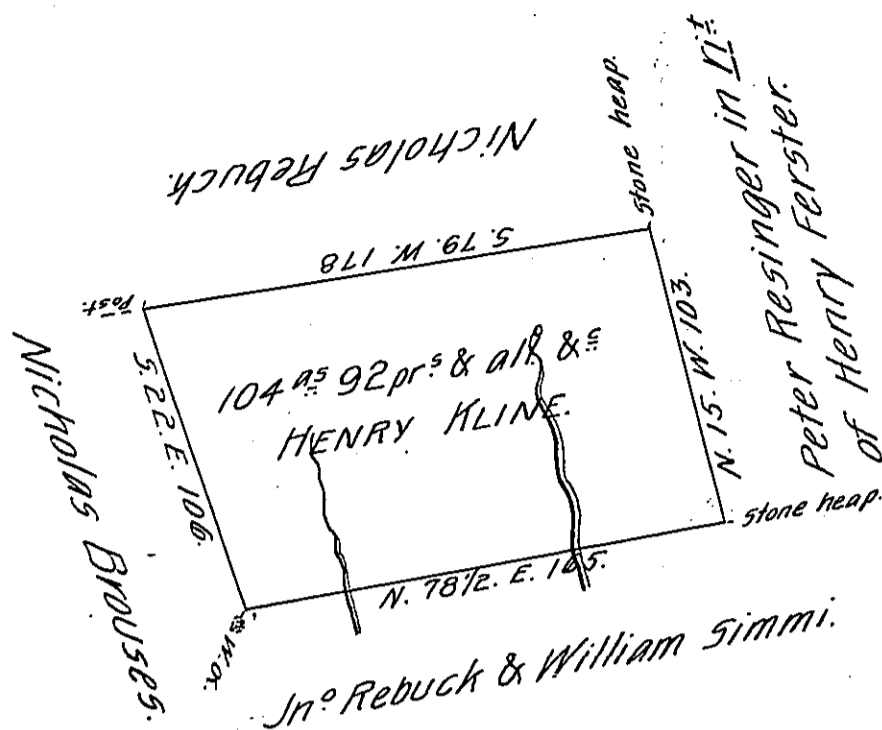 Nicholas Rebuck.
Stone heap.
Peter Resinger in rit
of Henry Ferster.
S. 79. W. 178
Post.
N. 15. W. 103.
104 as 92 prs & all. &c
HENRY KLINE.
Nicholas Brouses.
S. 22. E. 106.
Stone heap.
N. 78 1/2. E. 165.
W. o.
Jno Rebuck & William Simmi.